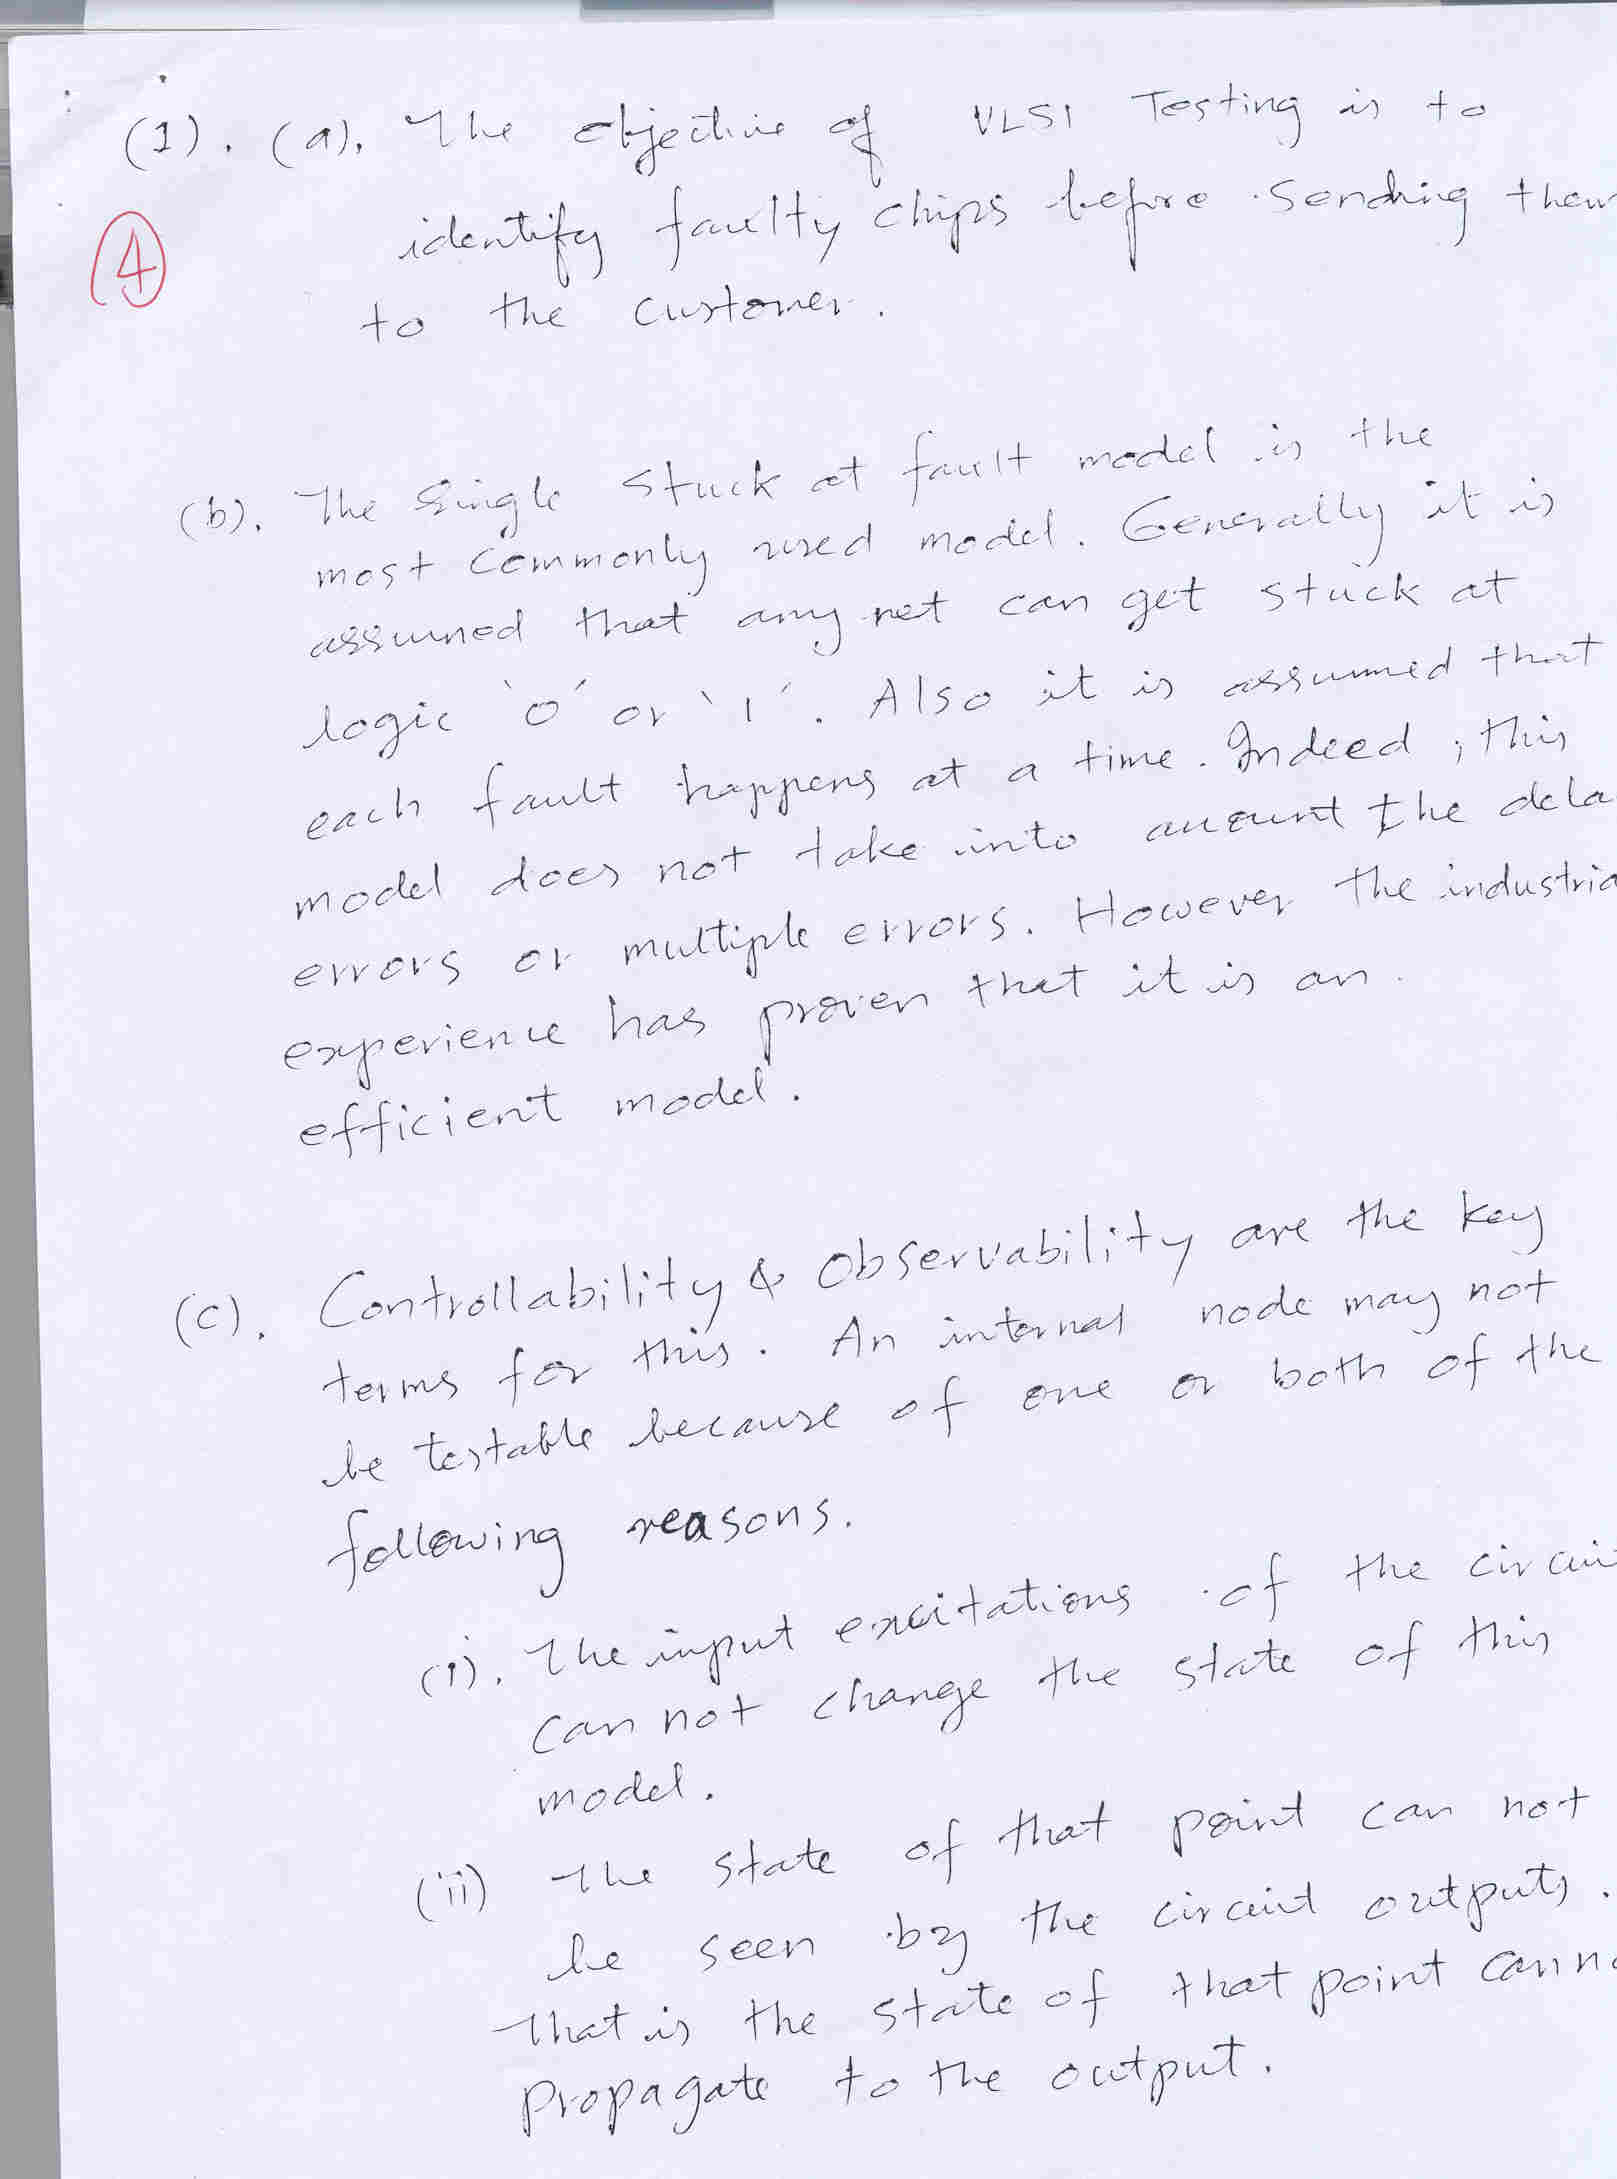 (1). (a). The objective of VLSI Testing is to
identify faulty chips before sending them
4
to the customer.
(b). The single stuck at fault model is the
most commonly used model. Generally it is
assumed that any net can get stuck at
logic '0' or '1'. Also it is assumed that
each fault happens at a time. Indeed, this
model does not take into account the dela
errors or multiple errors. However the industria
experience has proven that it is an
efficient model.
(c). Controllability & Observability are the key
terms for this. An internal node may not
be testable because of one or both of the
following reasons.
(i). The input excitations of the circuit
can not change the state of this
model.
(ii) The state of that point can not
be seen by the circuit outputs.
That is the state of that point canno
propagate to the output.